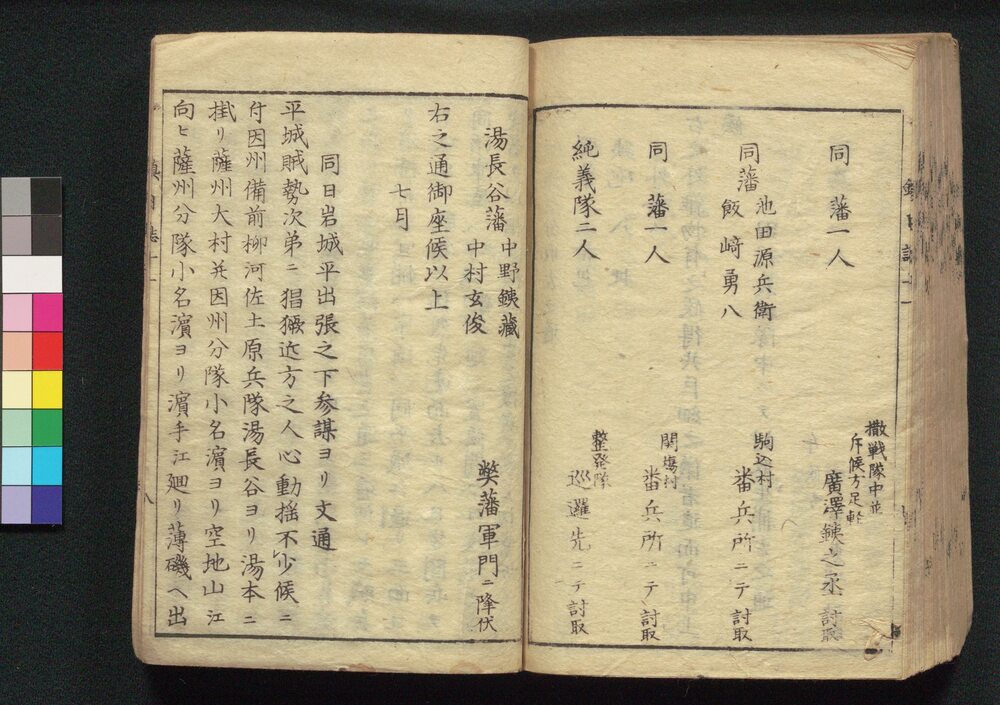 同藩一人
撒戦隊中並
斥候方足軽
廣澤銕之丞討取
同藩 池田源兵衛
飯﨑勇八
駒込村
番兵所ニテ討取
同藩一人
関場村
番兵所ニテ討取
純義隊二人
整發隊
巡邏先ニテ討取
湯長谷藩 中野銕藏
中村玄俊
弊藩軍門ニ降伏
右之通御座候以上
七月
同日岩城平出張之下参謀ヨリ文通
平城賊勢次第ニ猖獗近方之人心動揺不少候ニ
付因州備前柳河佐土原兵隊湯長谷ヨリ湯本ニ
掛リ薩州大村并因州分隊小名濱ヨリ空地山江
向ヒ薩州分隊小名濱ヨリ濱手江廻リ薄磯ヘ出
鎮日誌十一
八